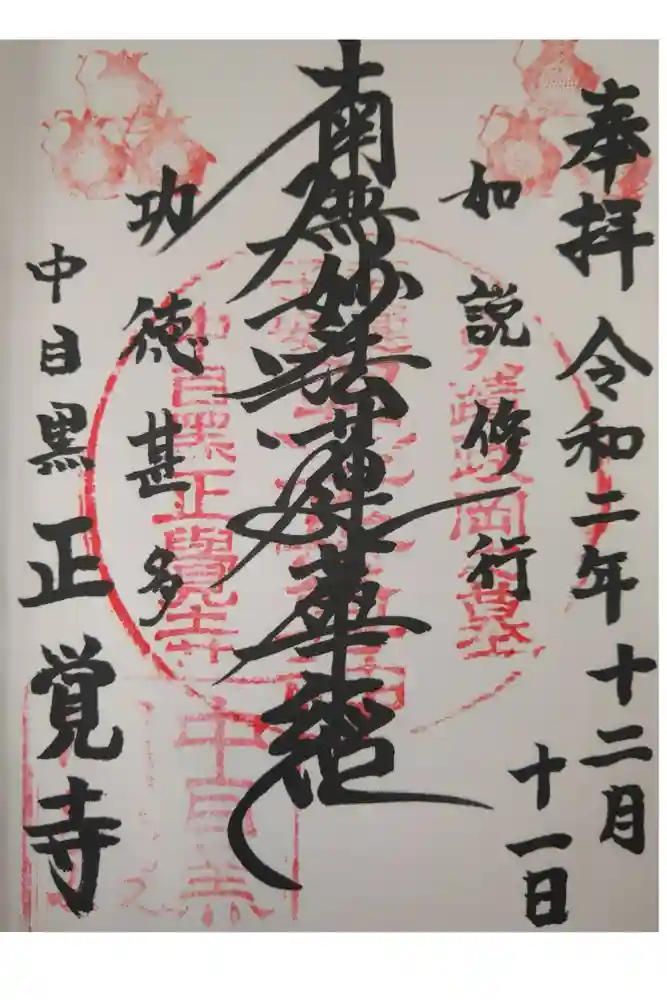 奉拝 令和二年十二月
十一日
如説修行
南無妙法蓮華経
功徳甚多
中目黒 正覚寺
中目黒正覺寺